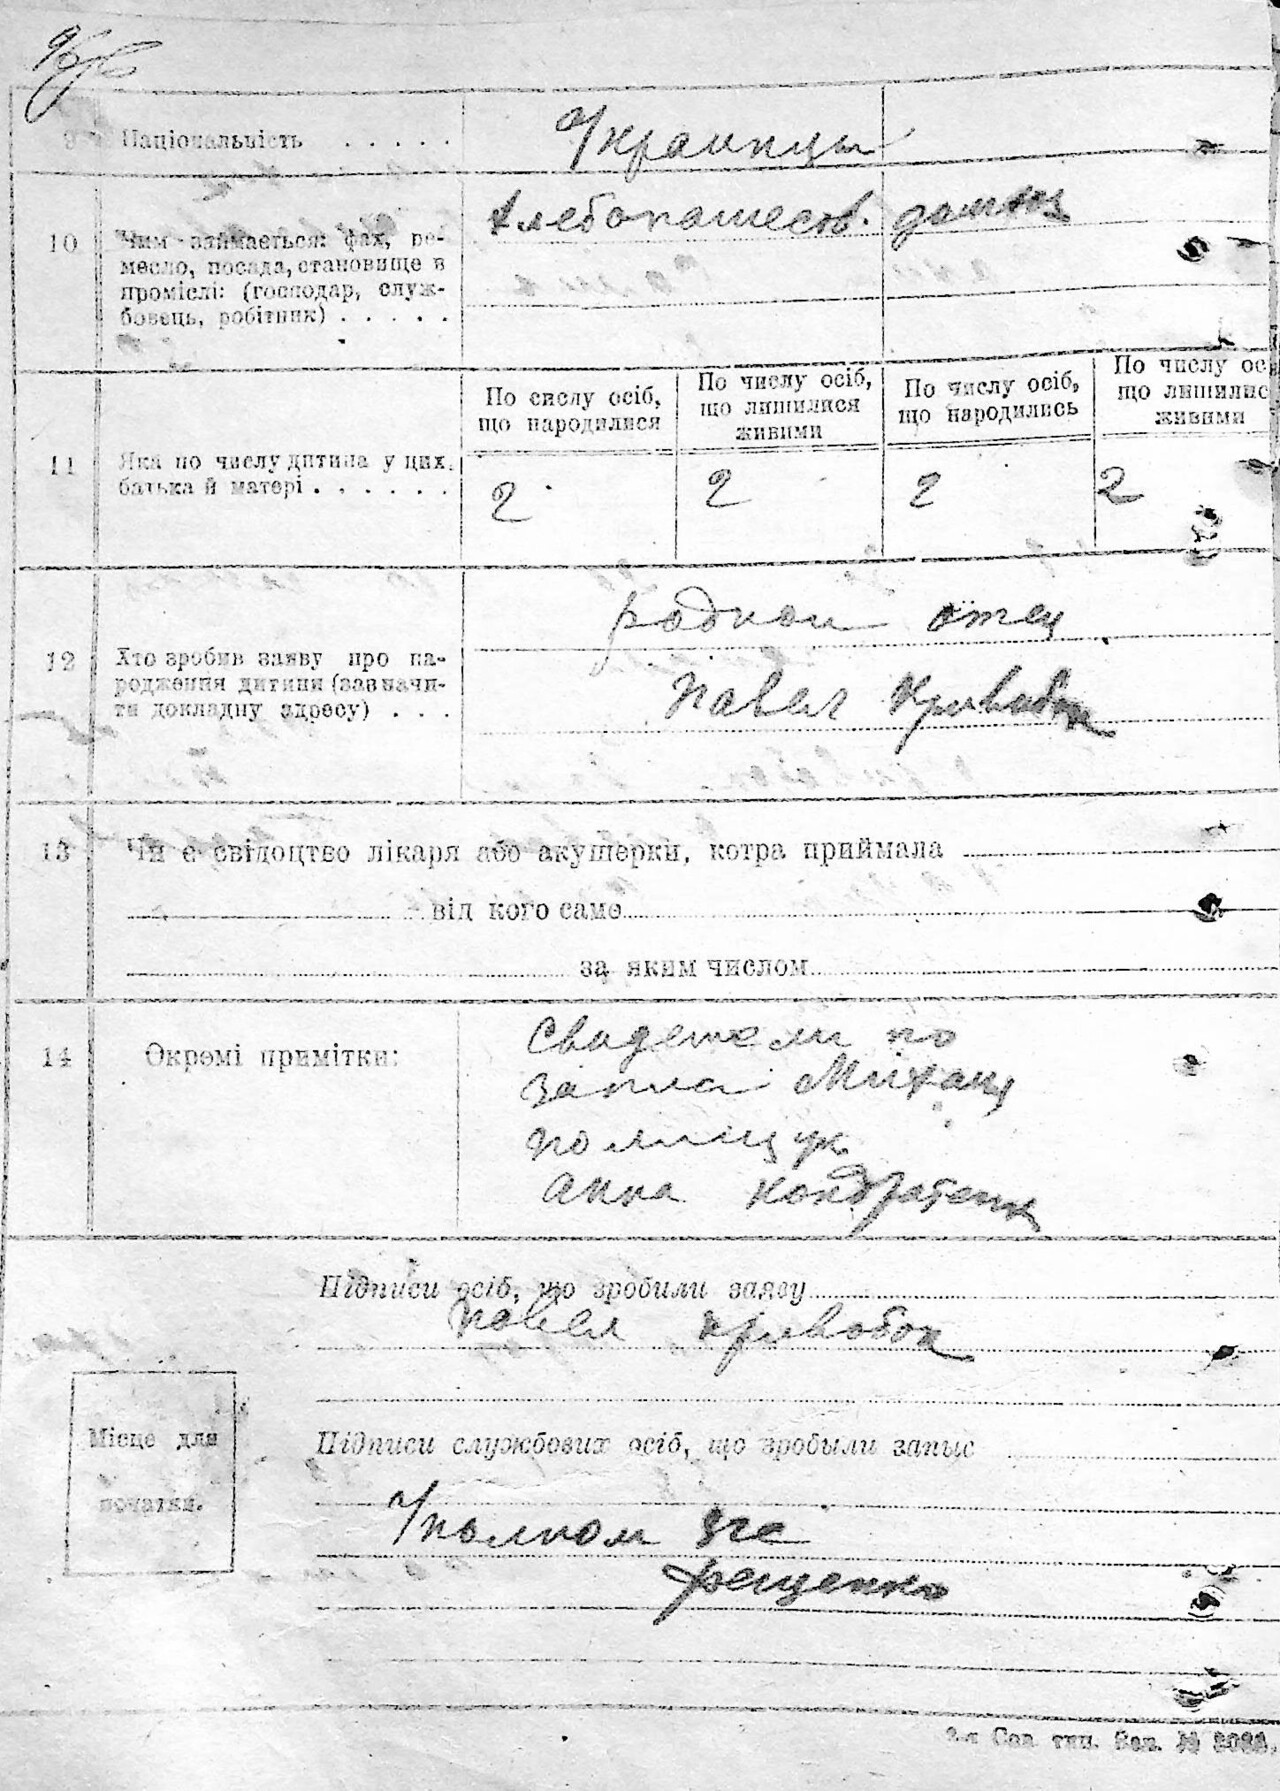 9 Національність . . . . .
Украинцы
10 Чим займається: фах, ре-
месло, посада, становище в
проміслі: (господар, служ-
бовець, робітник) . . . . .
Хлебопашеств.
По сислу осіб,
що народилися
По числу осіб,
що лишилися
живими
По число осіб,
що народились
По числу ос
що лишилис
живими
11 Яка по числу дитина у цих
батька й матері . . . . . .
2 2 2 2
12 Хто зробив заяву про на-
родження дитини (зазначи-
ти докладну адресу) . . .
родной отец
Павел Кривобок
13 Чи є свідоцтво лікаря або акушерки, котра приймала
від кого саме
за яким числом
14 Окремі примітки:
Свидетели по
записи Михаил
Полищук
Анна Кондратенк
Підписи осіб, що зробили заяву
Павел Кривобок
Підписи службових осіб, що зробыли запыс
Місце для
початки.
Уполном
Фещенко
2-я Сов. тип. Зак. №